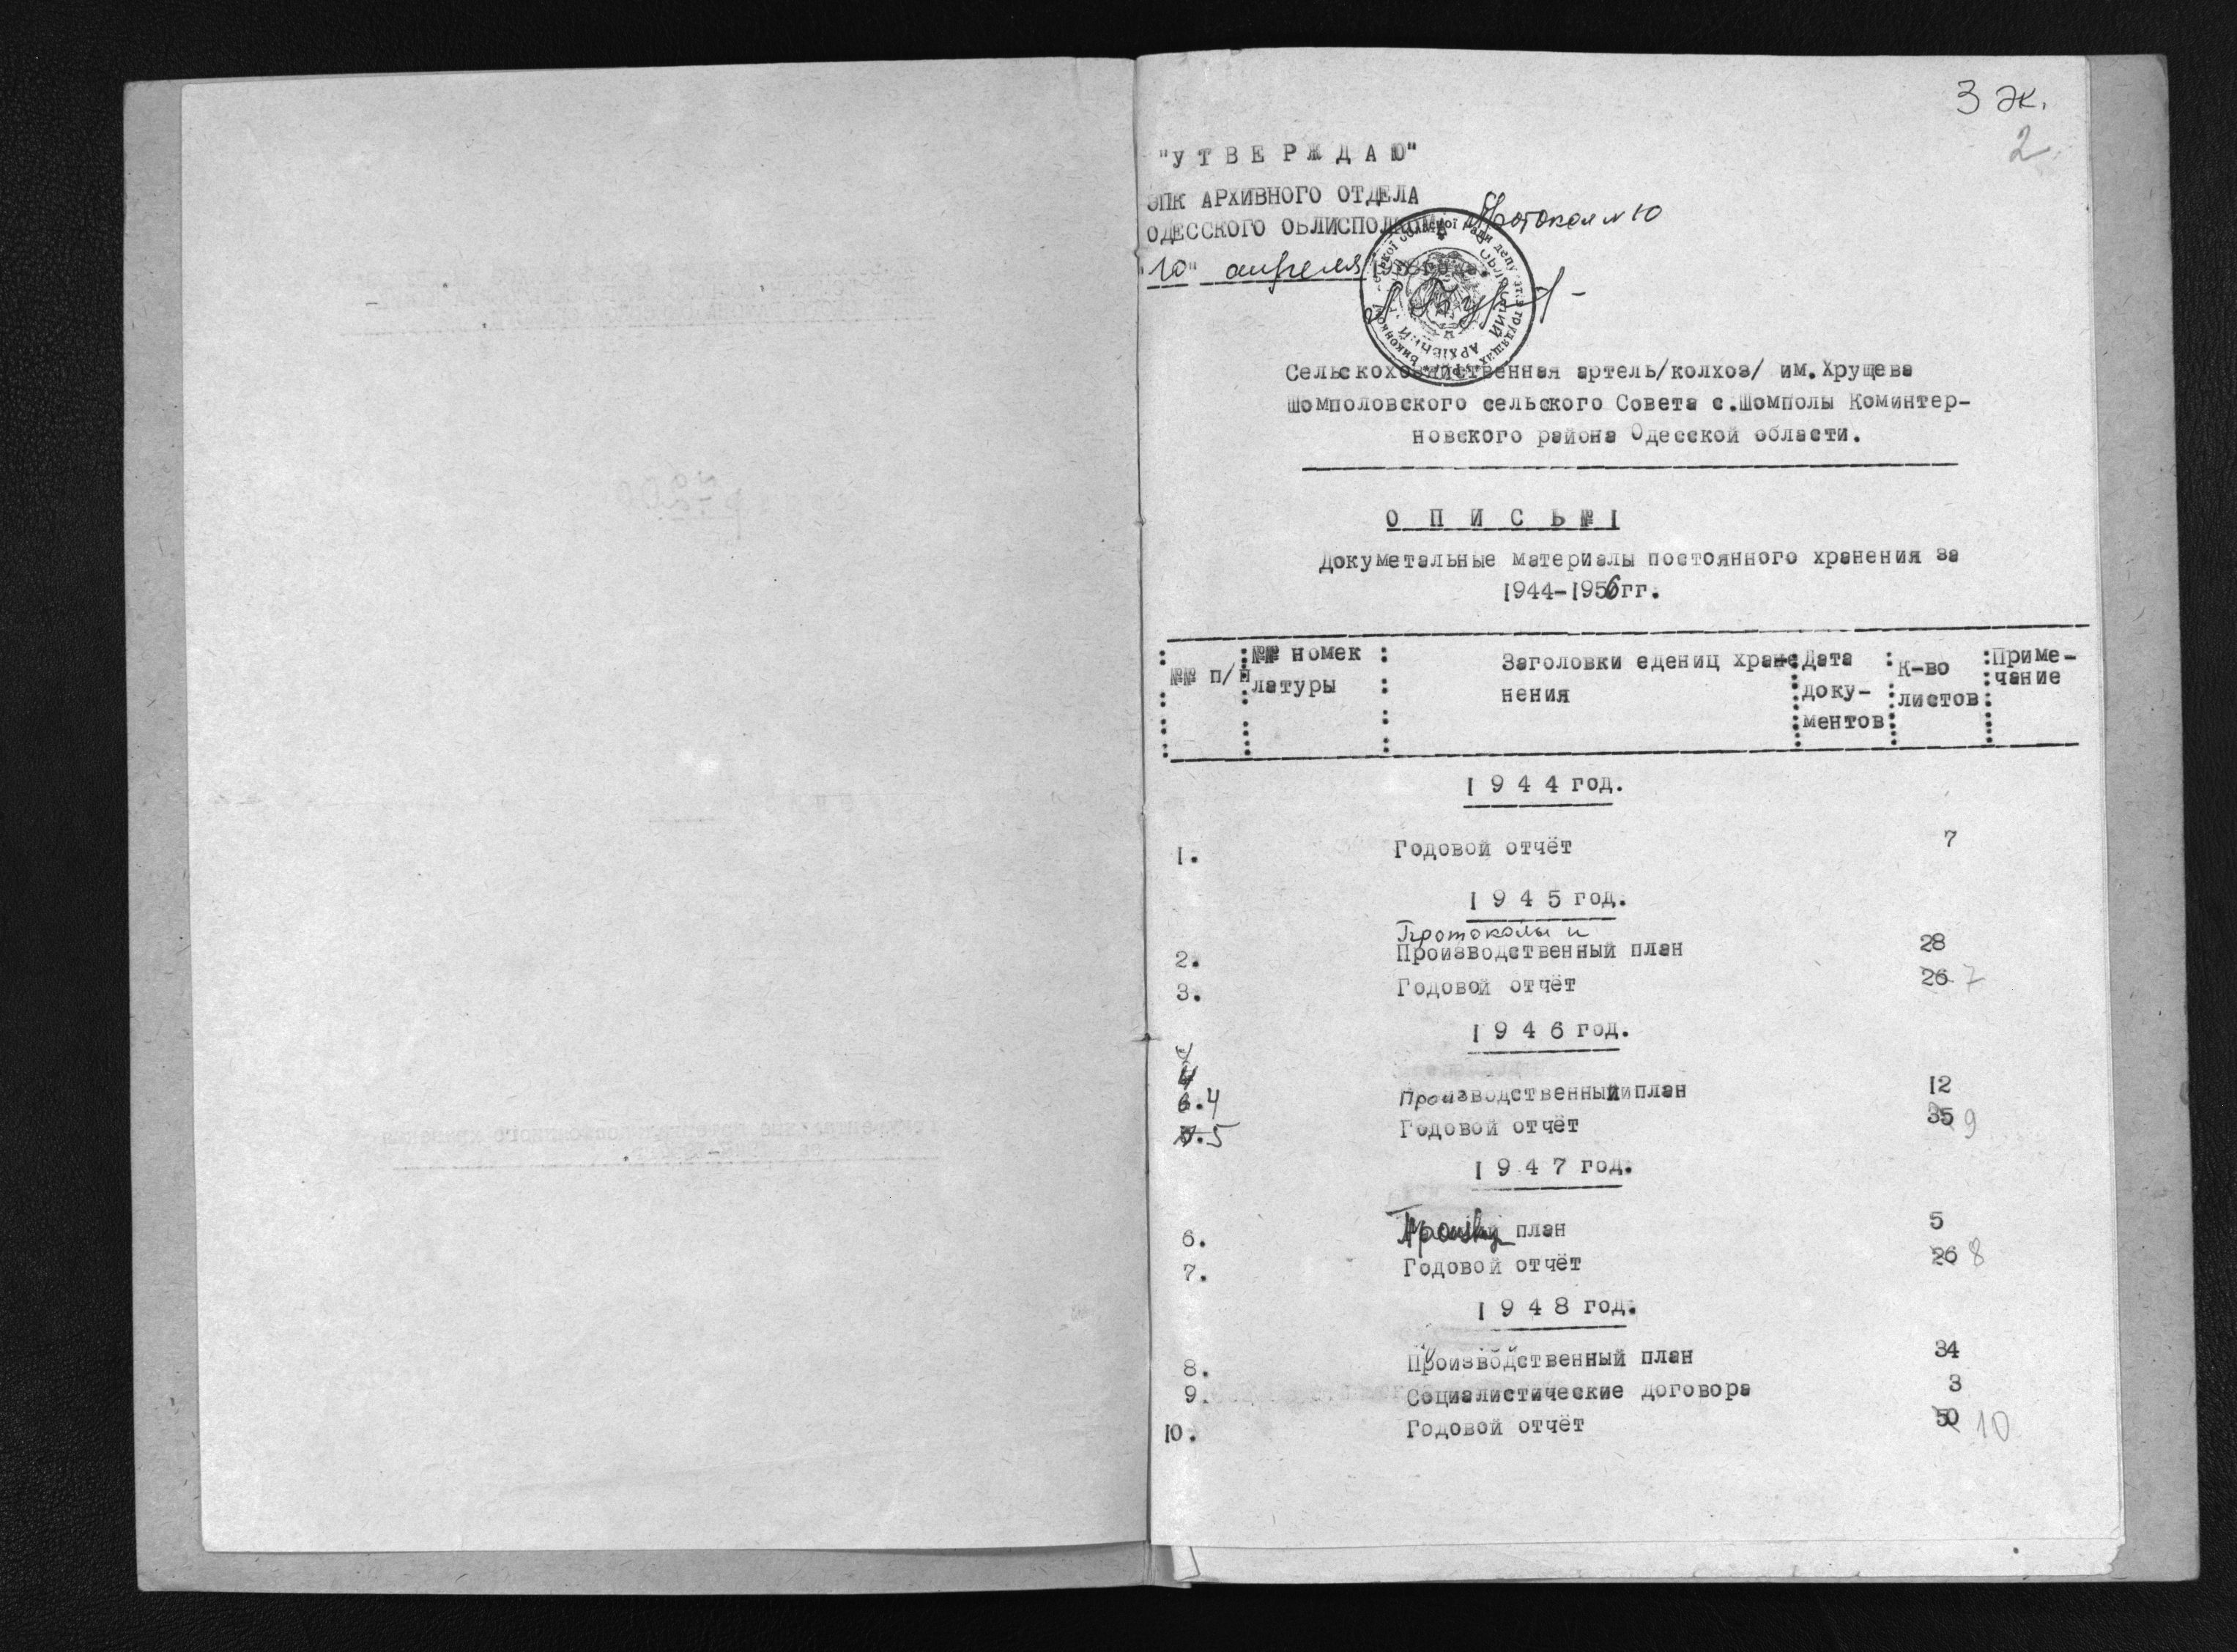 3 эк.
2
"У Т В Е Р Ж Д А Ю"
ЭПК АРХИВНОГО ОТДЕЛА
ОДЕССКОГО ОБЛИСПОЛКОМА Протокол № 10
"10" апреля
Сельскохозяйственная артель/колхоз/ им.Хрущева
Шомполовского сельского Совета с.Шомполы Коминтер-
новского района Одесской области.
О П И С Ь № 1
Докуметальные материалы постоянного хранения за
1944-1956гг.
№№ п/п
№№ номек
латуры
Заголовки едениц хране
нения
Дата
доку-
ментов
К-во
листов
Приме-
чание
1 9 4 4 год.
1. Годовой отчёт 7
1 9 4 5 год.
Протоколы и
2. Производственный план 28
3. Годовой отчёт 26 7
1 9 4 6 год.
4
6.4 Производственный план 12
5 Годовой отчёт 35 9
1 9 4 7 год.
6. план 5
7. Годовой отчёт 26 8
1 9 4 8 год.
8. Производственный план 34
9. Социалистические договора 3
10. Годовой отчёт 50 10